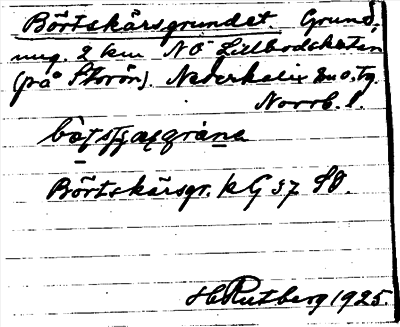 Börtskärsgrundet. Grund,
ung. 2 km NO Lillbodskaten
(på Storön). Nederkalix sn o. tg.
Norrb. l.
Börtskärsgr. kG 37 SO.
H Rutberg 1925.